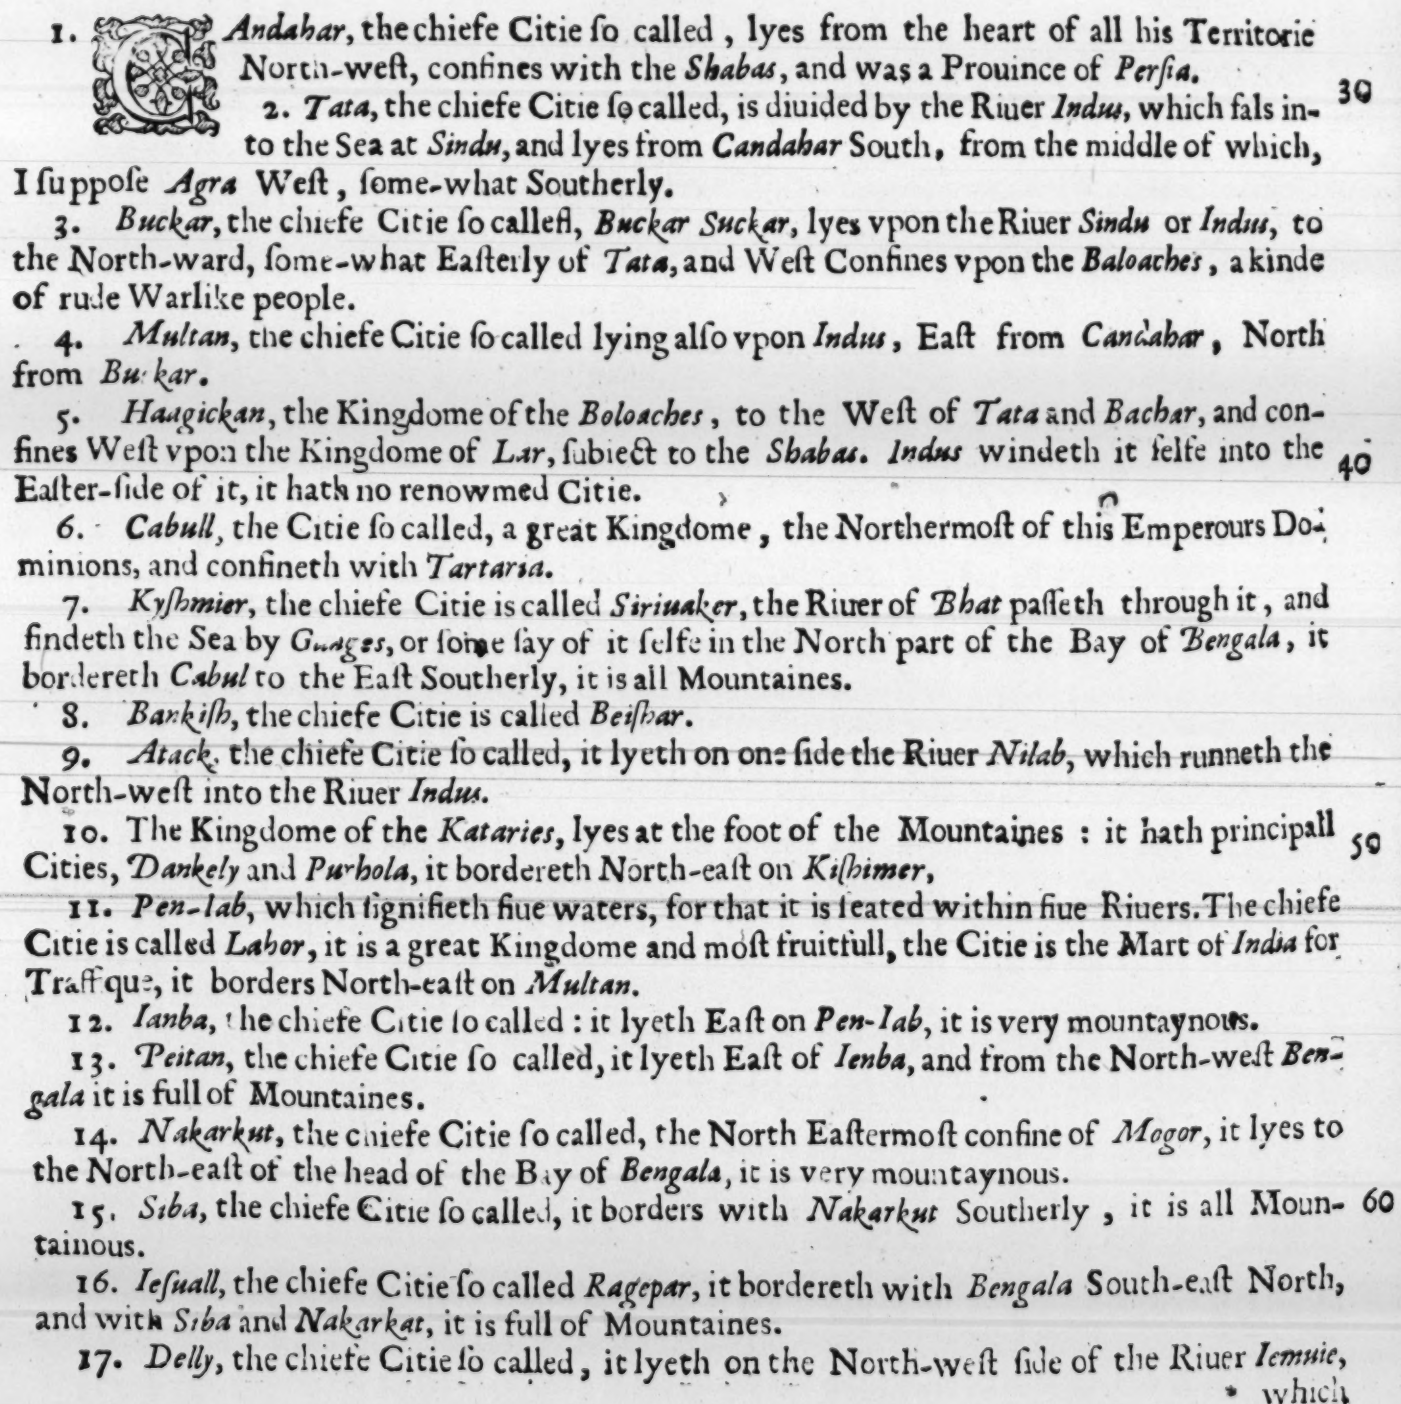 1. CAndahar, the chiefe Citie ſo called, lyes from the heart of all his Territorie
North-weſt, confines with the Shabas, and was a Prouince of Perſia.
30
2. Tata, the chiefe Citie ſo called, is diuided by the Riuer Indus, which fals in-
to the Sea at Sindu, and lyes from Candahar South, from the middle of which,
I ſuppoſe Agra Weſt, ſome-what Southerly.
3. Buckar, the chiefe Citie ſo calleſl, Buckar Suckar, lyes vpon the Riuer Sindu or Indus, to
the North-ward, ſome-what Eaſterly of Tata, and Weſt Confines vpon the Baloaches, a kinde
of rude Warlike people.
4. Multan, the chiefe Citie ſo called lying alſo vpon Indus, Eaſt from Candahar, North
from Buckar.
5. Haagickan, the Kingdome of the Boloaches, to the Weſt of Tata and Bachar, and con-
fines Weſt vpon the Kingdome of Lar, ſubiect to the Shabas. Indus windeth it ſelfe into the
40
Eaſter-ſide of it, it hath no renowmed Citie.
6. Cabull, the Citie ſo called, a great Kingdome, the Northermoſt of this Emperours Do-
minions, and confineth with Tartaria.
7. Kyſhmier, the chiefe Citie is called Siriuaker, the Riuer of Bhat paſſeth through it, and
findeth the Sea by Ganges, or ſome ſay of it ſelfe in the North part of the Bay of Bengala, it
bordereth Cabul to the Eaſt Southerly, it is all Mountaines.
8. Bankiſh, the chiefe Citie is called Beiſhar.
9. Atack, the chiefe Citie ſo called, it lyeth on one ſide the Riuer Nilab, which runneth the
North-weſt into the Riuer Indus.
10. The Kingdome of the Kataries, lyes at the foot of the Mountaines : it hath principall
50
Cities, Dankely and Purhola, it bordereth North-eaſt on Kiſhimer,
11. Pen-Iab, which ſignifieth fiue waters, for that it is ſeated within fiue Riuers. The chiefe
Citie is called Lahor, it is a great Kingdome and moſt fruitfull, the Citie is the Mart of India for
Traffque, it borders North-eaſt on Multan.
12. Ianba, the chiefe Citie ſo called : it lyeth Eaſt on Pen-Iab, it is very mountaynous.
13. Peitan, the chiefe Citie ſo called, it lyeth Eaſt of Ienba, and from the North-weſt Ben-
gala it is full of Mountaines.
14. Nakarkut, the chiefe Citie ſo called, the North Eaſtermoſt confine of Mogor, it lyes to
the North-eaſt of the head of the Bay of Bengala, it is very mountaynous.
15. Siba, the chiefe Citie ſo called, it borders with Nakarkut Southerly, it is all Moun-
60
tainous.
16. Ieſuall, the chiefe Citie ſo called Ragepar, it bordereth with Bengala South-eaſt North,
and with Siba and Nakarkat, it is full of Mountaines.
17. Delly, the chiefe Citie ſo called, it lyeth on the North-weſt ſide of the Riuer Iemuie,
which